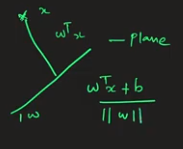 x
wᵀx — plane
wᵀx + b
|| w ||
w